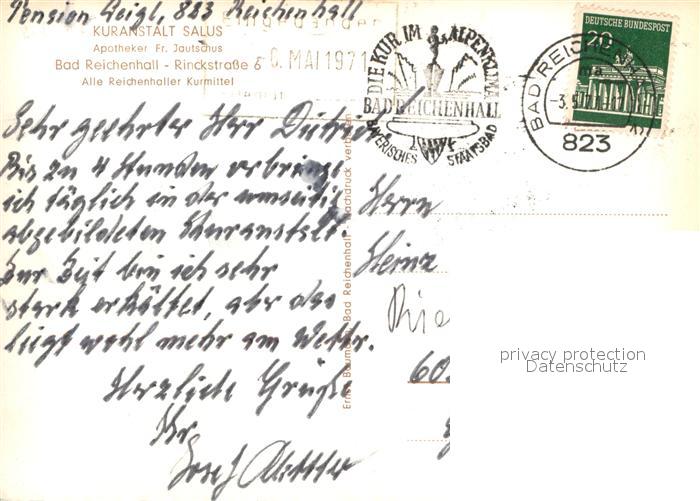 Pension Geigl, 823 Reichenhall
KURANSTALT SALUS
Apotheker Fr. Jautschus
Bad Reichenhall - Rinckstraße 6
Alle Reichenhaller Kurmittel
MAI 1971
DIE KUR IM ALPENKLIMA
BAD REICHENHALL
BAYERISCHES STAATSBAD
DEUTSCHE BUNDESPOST
20
BAD REICHENHALL
823
Sehr geehrter Herr Dietrich
Bis zu 4 Stunden verbringe
ich täglich in der umseitig
abgebildeten Kuranstalt.
Zur Zeit bin ich sehr
stark erkältet, aber das
liegt wohl mehr am Wetter.
Herzliche Grüße
Ihr
Josef
Bad Reichenhall - Nachdruck verboten
Herrn
Heinz
60
privacy protection
Datenschutz